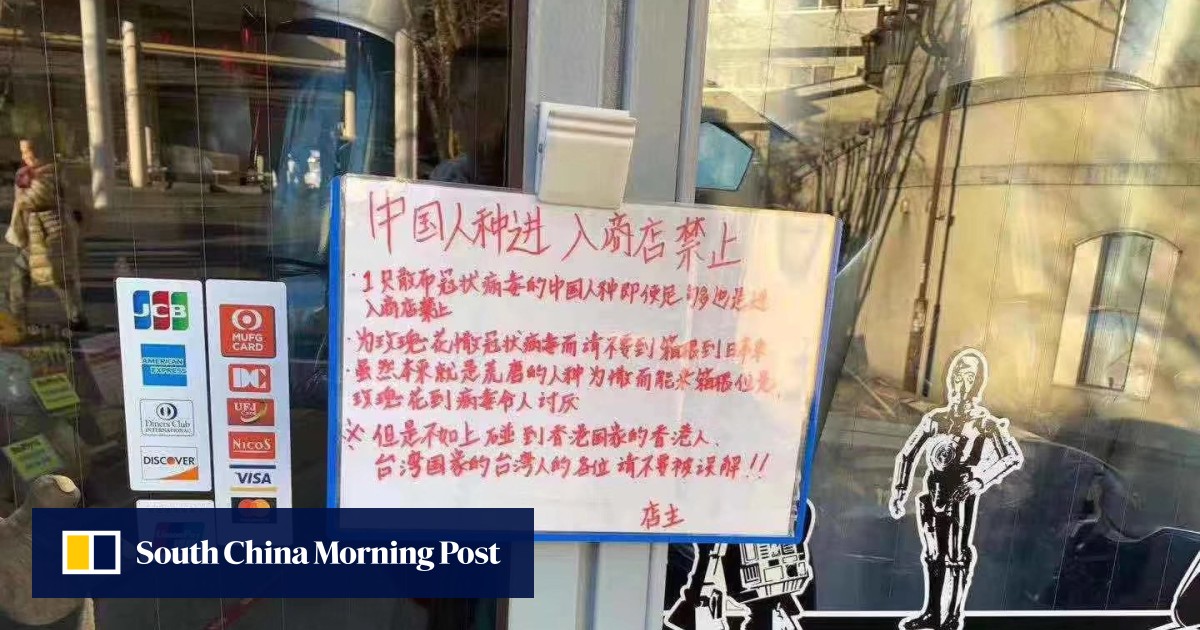 中国人种进 入商店禁止
·1只散布冠状病毒的中国人种即使足够也是进
入商店禁止
·为玫瑰花,撒冠状病毒而请不要到箱根到日本来
·虽然本来就是荒磨的人种为撒而能来箱根但是,
玫瑰花到病毒令人讨厌
※但是不如上碰到香港国家的香港人、
台湾国家的台湾人的各位请不要被误解!!
店主
JCB
AMERICAN
EXPRESS
Diners Club
INTERNATIONAL
DISCOVER
MUFG
CARD
DC
UFJ
Card
NICOS
VISA
South China Morning Post